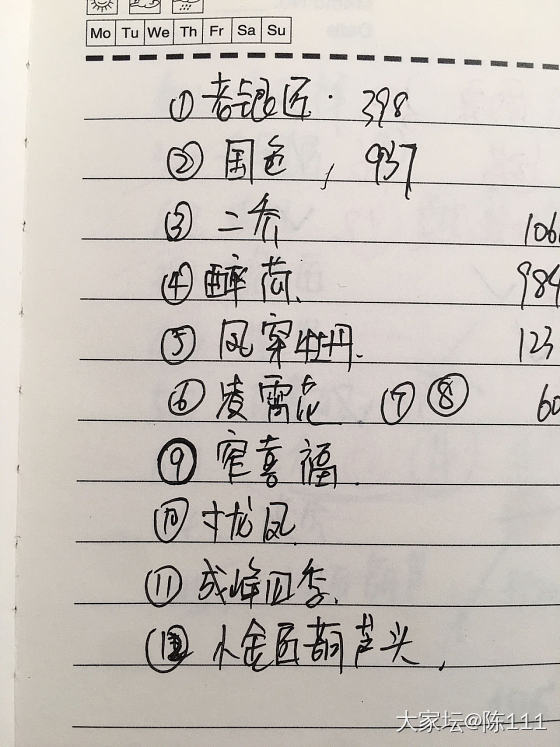 Mo Tu We Th Fr Sa Su
① 老银匠. 398
② 国色, 937
③ 二乔 106
④ 醉荷. 984
⑤ 凤穿牡丹. 123
⑥ 凌霄花 ⑦ ⑧ 60
⑨ 窄喜福.
⑩ 寸龙凤
⑪ 成峰四季.
⑫ 小金匠葫芦头,
大家坛@陈111